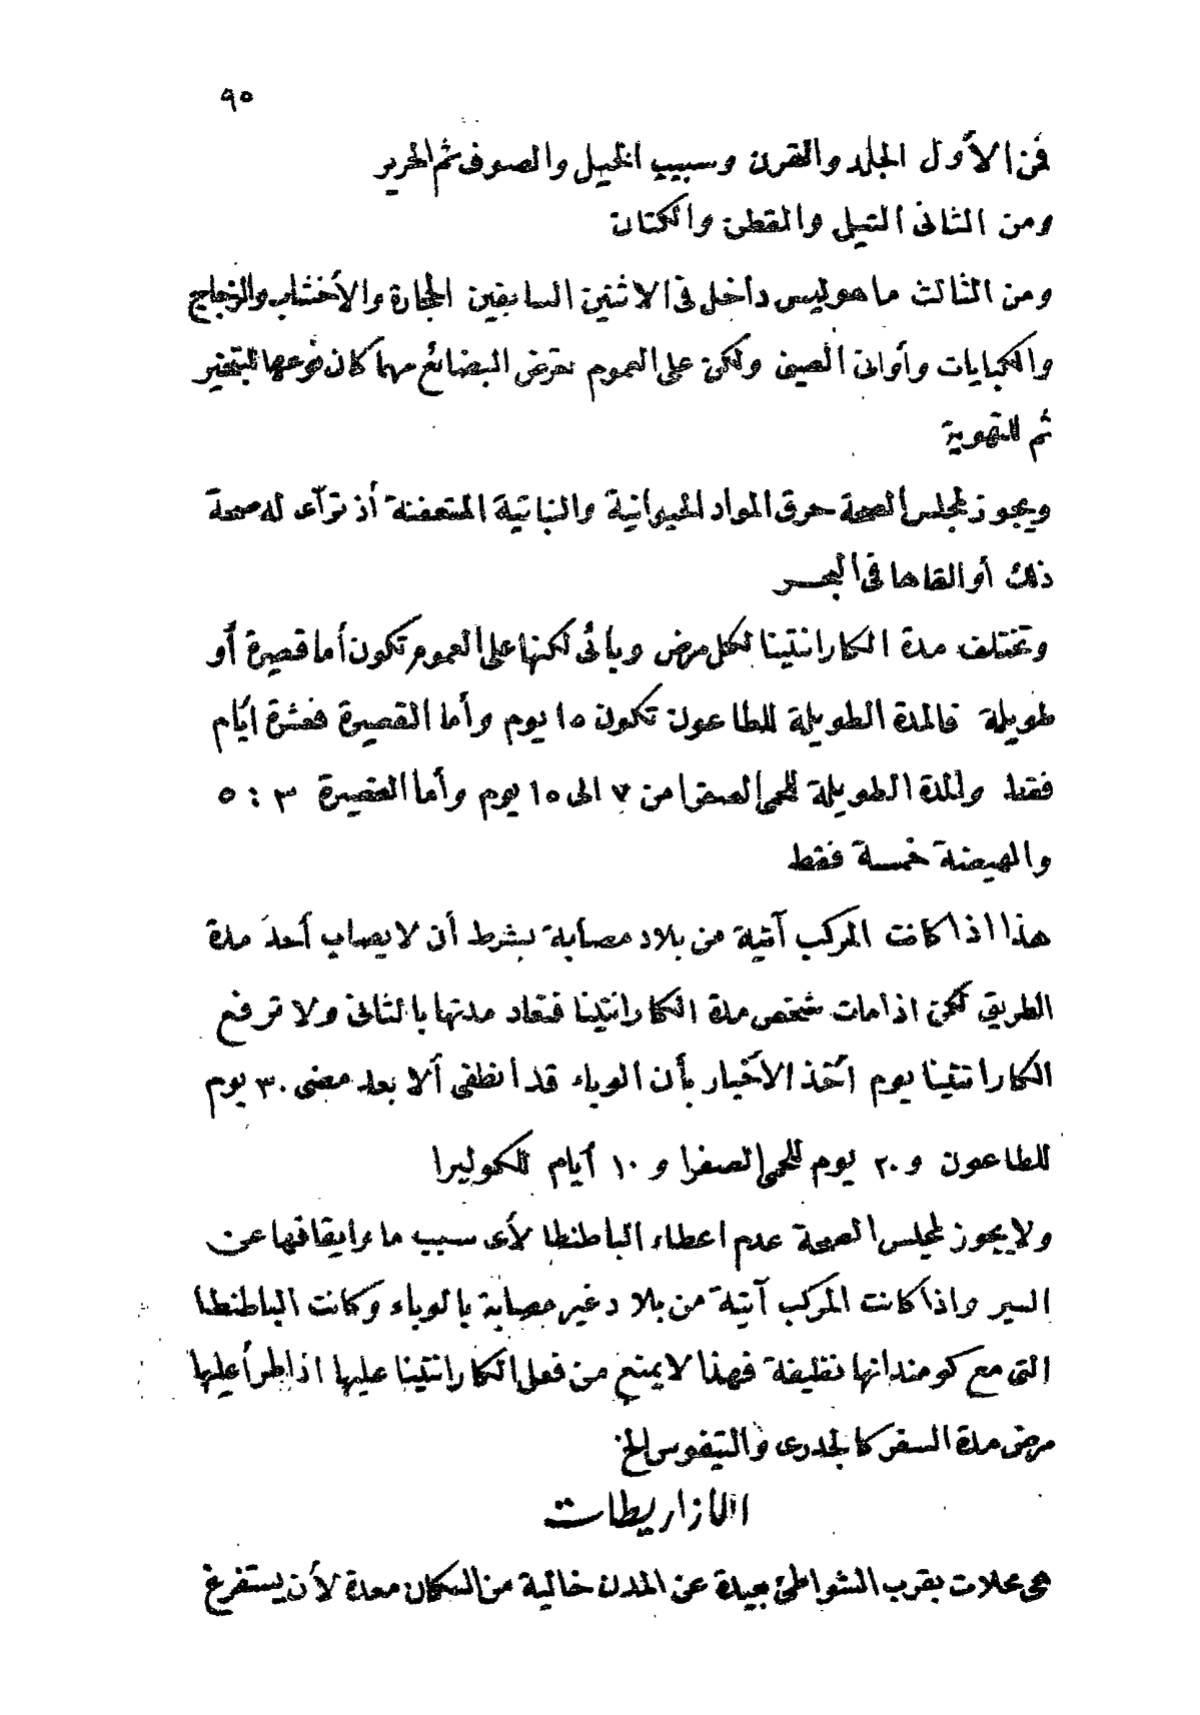 ٩٥
فمن الأول الجلد والقرن وسبيب الخيل والصوف ثم الحرير
ومن الثانى التيل والقطن والكتان
ومن الثالث ما هو ليس داخل فى الاثنين السابقين الحجارة والأخشاب والزجاج
والكبايات وأوانى الصينى ولكن على العموم تعرض البضائع مهما كان نوعها للتبخير
ثم للتهوية
ويجوز لمجلس الصحة حرق المواد الحيوانية والنباتية المتعفنة أذ تراءى له صحة
ذلك أو القاها فى البحر
وتختلف مدة الكارانتينا لكل مرض وبائى لكنها على العموم تكون أما قصيرة أو
طويلة فالمدة الطويلة للطاعون تكون ١٥ يوم وأما القصيرة فعشرة ايام
فقط والمدة الطويلة للحمى الصفرا من ٧ الى ١٥ يوم وأما القصيرة ٣ : ٥
والهيضة خمسة فقط
هذا اذا كانت المركب آتية من بلاد مصابة بشرط أن لا يصاب أحد مدة
الطريق لكن اذا مات شخص مدة الكارانتينا فتعاد مدتها بالثانى ولا ترفع
الكارانتينا يوم أخذ الأخبار بأن الوباء قد انطفى ألا بعد مضى ٣٠ يوم
للطاعون و ٢٠ يوم للحمى الصفرا و ١٠ أيام للكوليرا
ولا يجوز لمجلس الصحة عدم اعطاء الباطنطا لأى سبب ما وايقافها عن
السير واذا كانت المركب آتية من بلاد غير مصابة بالوباء وكانت الباطنطا
التى مع كومندانها نظيفة فهذا لا يمنع من فعل الكارانتينا عليها اذا طرأ عليها
مرض مدة السفر كالجدرى والتيفوس الخ
اللازاريطات
هى محلات بقرب الشواطئ بعيدة عن المدن خالية من السكان معدة لأن يستفرغ